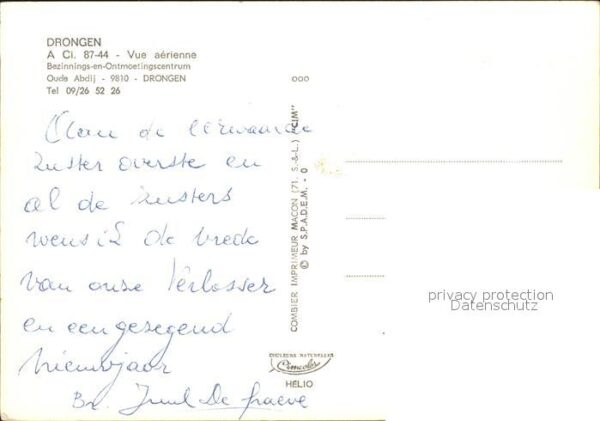 DRONGEN
A Ci. 87-44 - Vue aérienne
Bezinnings-en-Ontmoetingscentrum
Oude Abdij - 9810 - DRONGEN
Tel 09/26 52 26
ooo
Aan de eerwaarde
Zuster overste en
al de zusters
wens ik de vrede
van onze Verlosser
en een gezegend
Nieuwjaar
Br. De Graeve
COMBIER IMPRIMEUR MACON (71. S.-&-L.) "CIM"
© by S.P.A.D.E.M. - 0
privacy protection
Datenschutz
COULEURS NATURELLES
Cimcolor
HÉLIO